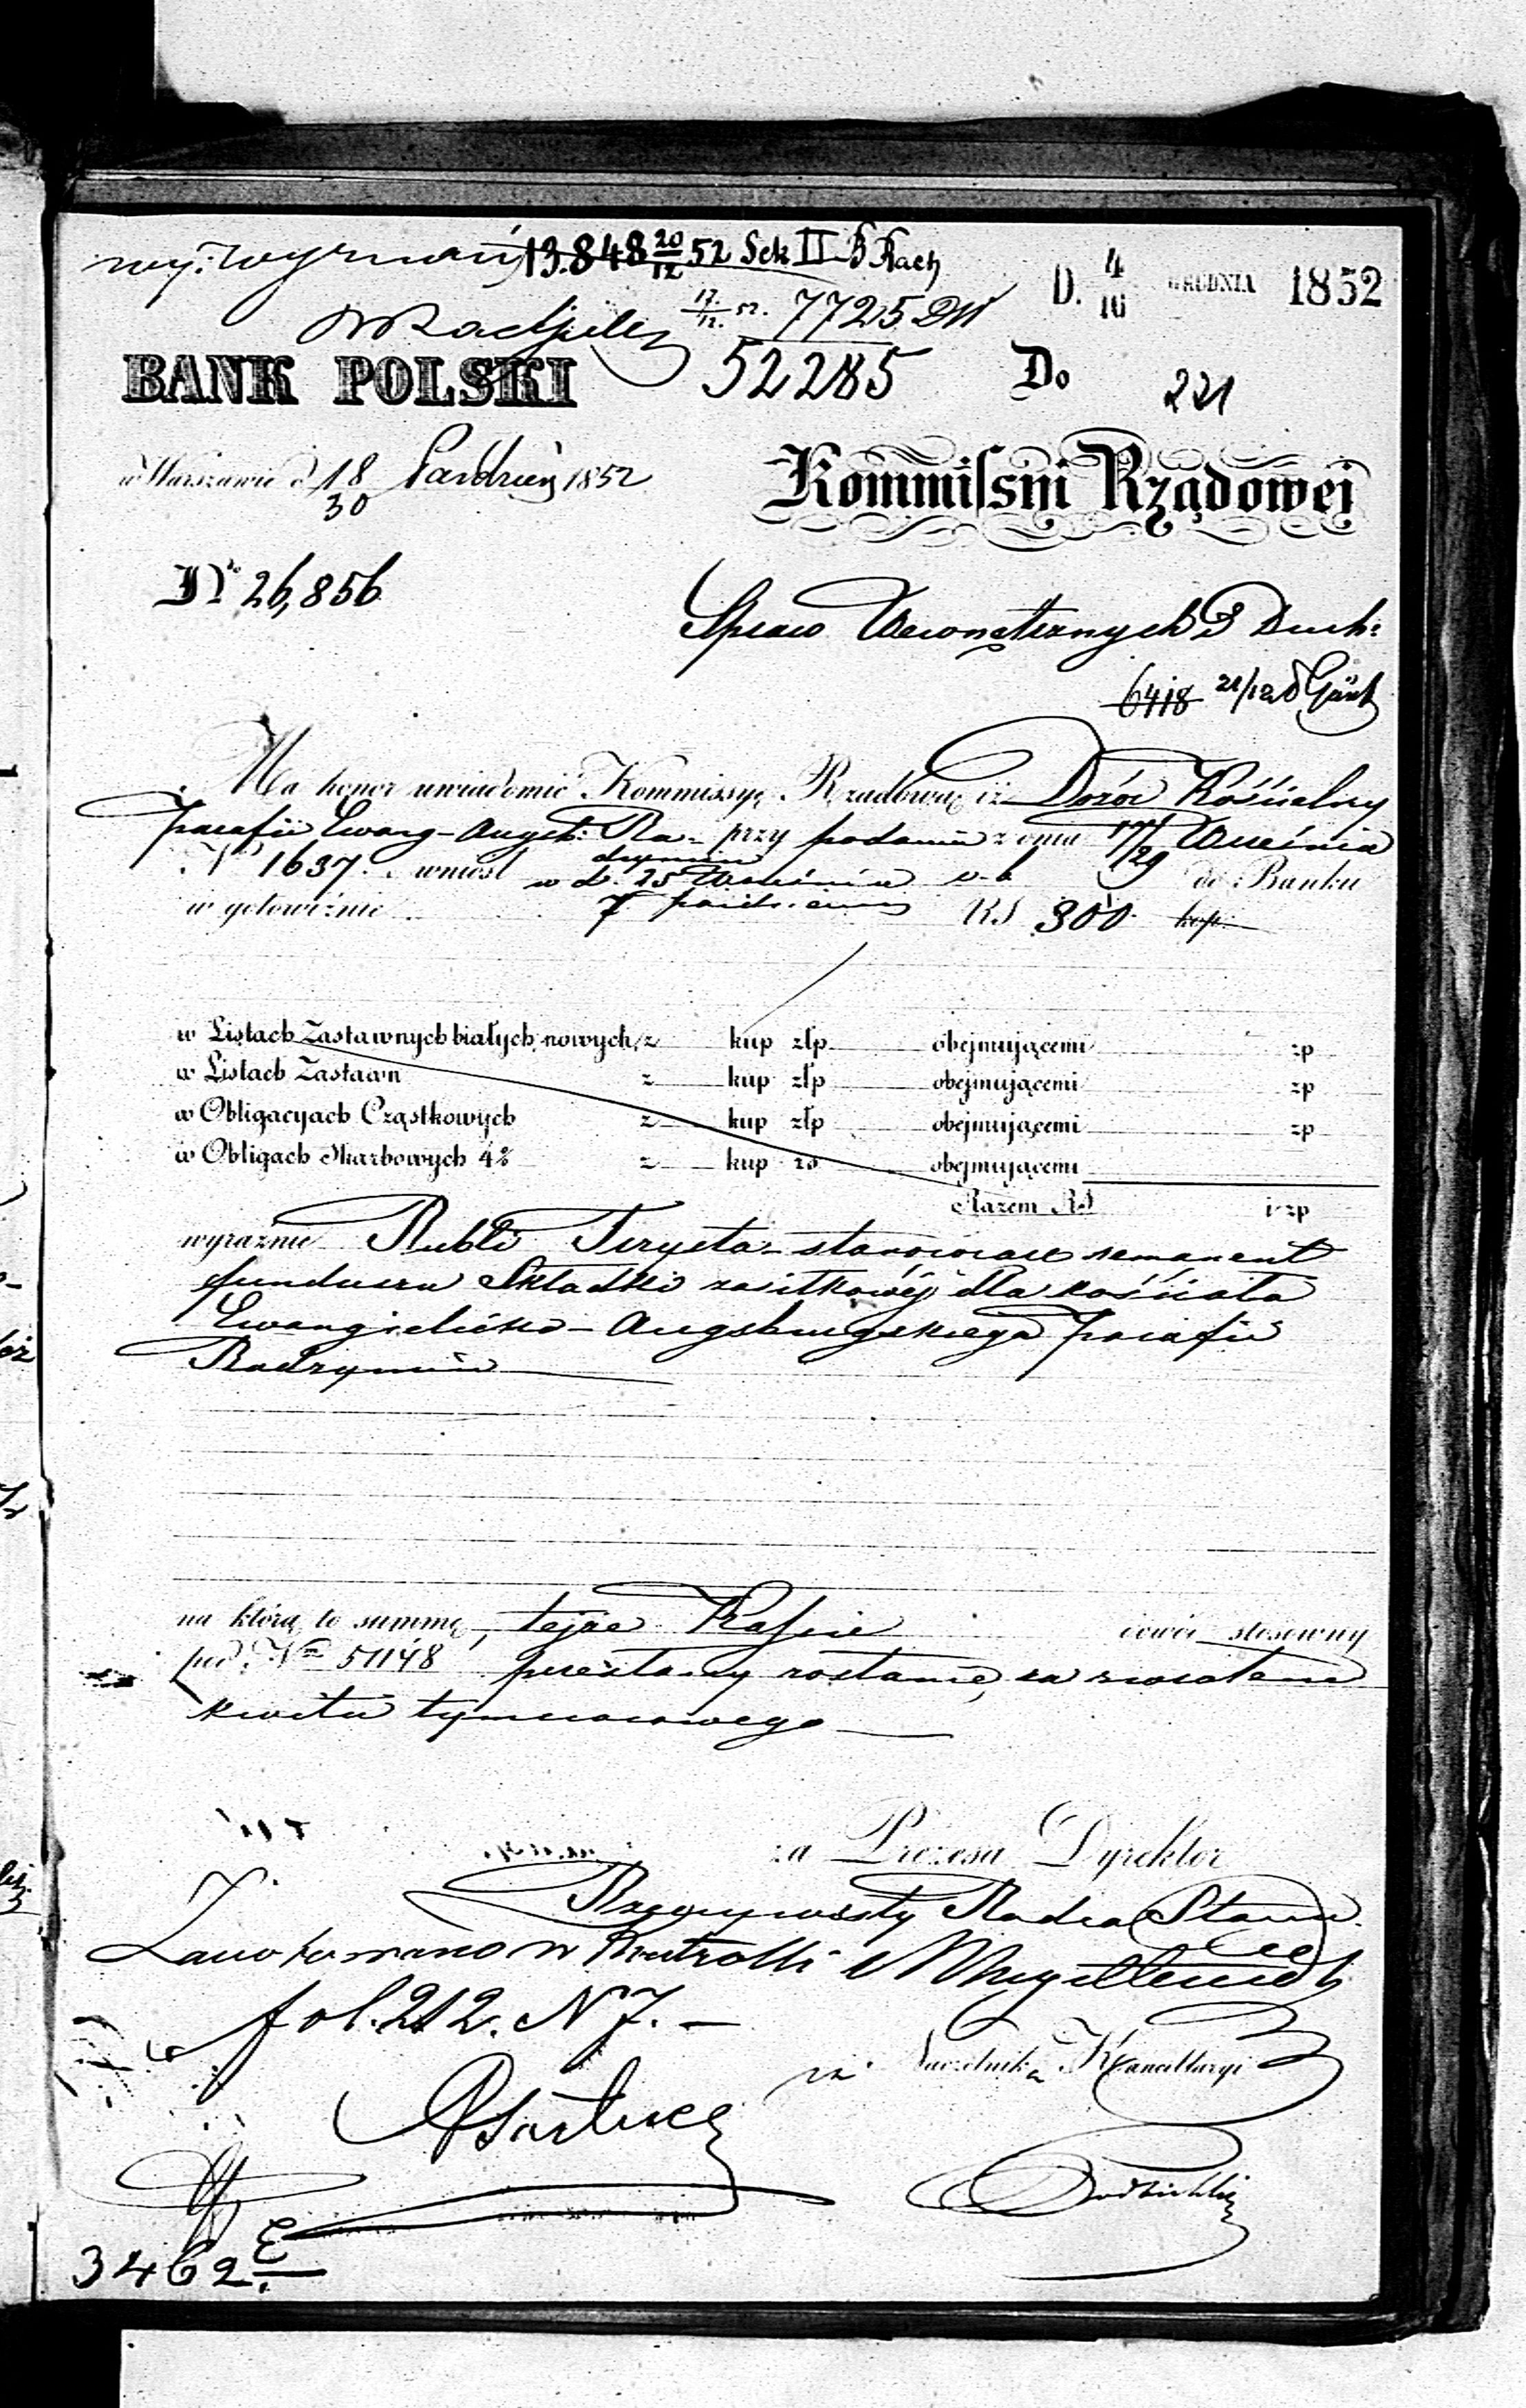 13.848 20/12 52 Sek II B Rach
D. 4/16 GRUDNIA 1852
17/12 52. 7725 DW
BANK POLSKI
52285
Do
221
w Warszawie d 18/30 Pazdzier 1852
Kommissyi Rządowej
No 26,856
Spraw Wewnętrznych i Duch:
6418 21/12
Ma honor uwiadomić Kommissyę Rządową iż Dozór Kościelny
Parafii Ewang-Augsb: Ra- przy podaniu z dnia 17/29 Września
dzymin
No 1637. wniósł w d. 25 Września v. b. do Banku
w gotowiźnie 7 Paździer RS 300 kop.
w Listach Zastawnych białych nowych, z kup złp obejmującemi zp
w Listach Zastawn z kup złp obejmującemi zp
w Obligacyjach Cząstkowych z kup złp obejmującemi zp
w Obligach Skarbowych 4% z kup zo obejmującemi
Razem RS i zp
wyraźnie Rubli Trzysta stanowiące remanent
funduszu Składki zasiłkowéj dla kościoła
Ewangielicko-Augsburgskiego Parafii
Radzymin
na którą to summę, tejże Kassie dowód stosowny
pod No 51148 przesłany zostanie, za zwrotem
kwitu tymczasowego
za Prezesa Dyrektor
Rzeczywisty Radca Stanu
Zanotowano w Kontrolli
fol. 212. N 7. —
za Naczelnika Kancellaryi
3462.